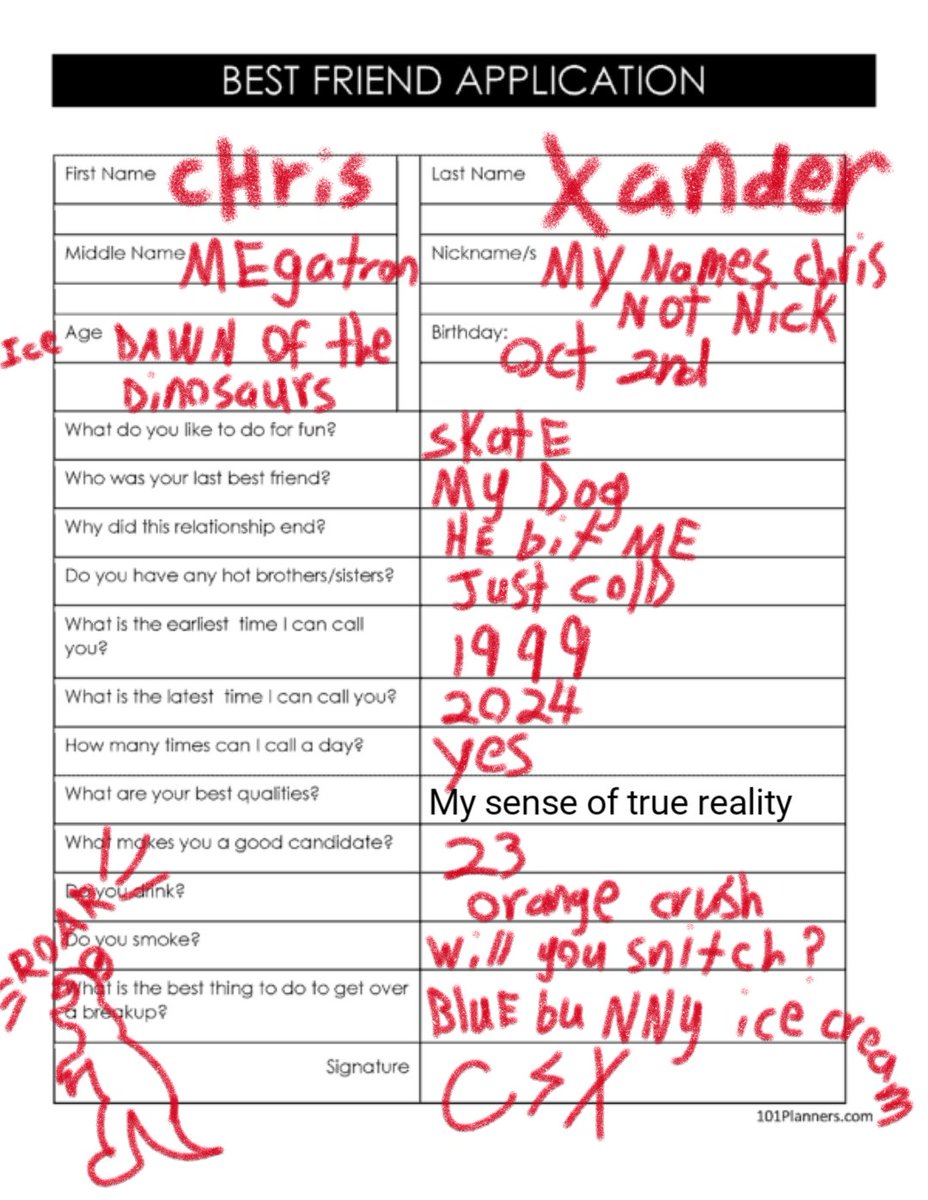 BEST FRIEND APPLICATION
First Name cHris
Last Name Xander
Middle Name MEgatron
Nickname/s MY Names chris
NOT NicK
Ice Age DAWN Of the
Dinosaurs
Birthday: Oct 2nd
What do you like to do for fun? sKatE
Who was your last best friend? My Dog
Why did this relationship end? HE bit ME
Do you have any hot brothers/sisters? Just colD
What is the earliest time I can call
you? 1999
What is the latest time I can call you? 2024
How many times can I call a day? yes
What are your best qualities? My sense of true reality
What makes you a good candidate? 23
Do you drink? orange crush
Do you smoke? Will you snitch?
ROAR
What is the best thing to do to get over
a breakup? BluE bu NNy ice cream
Signature CSX
101Planners.com